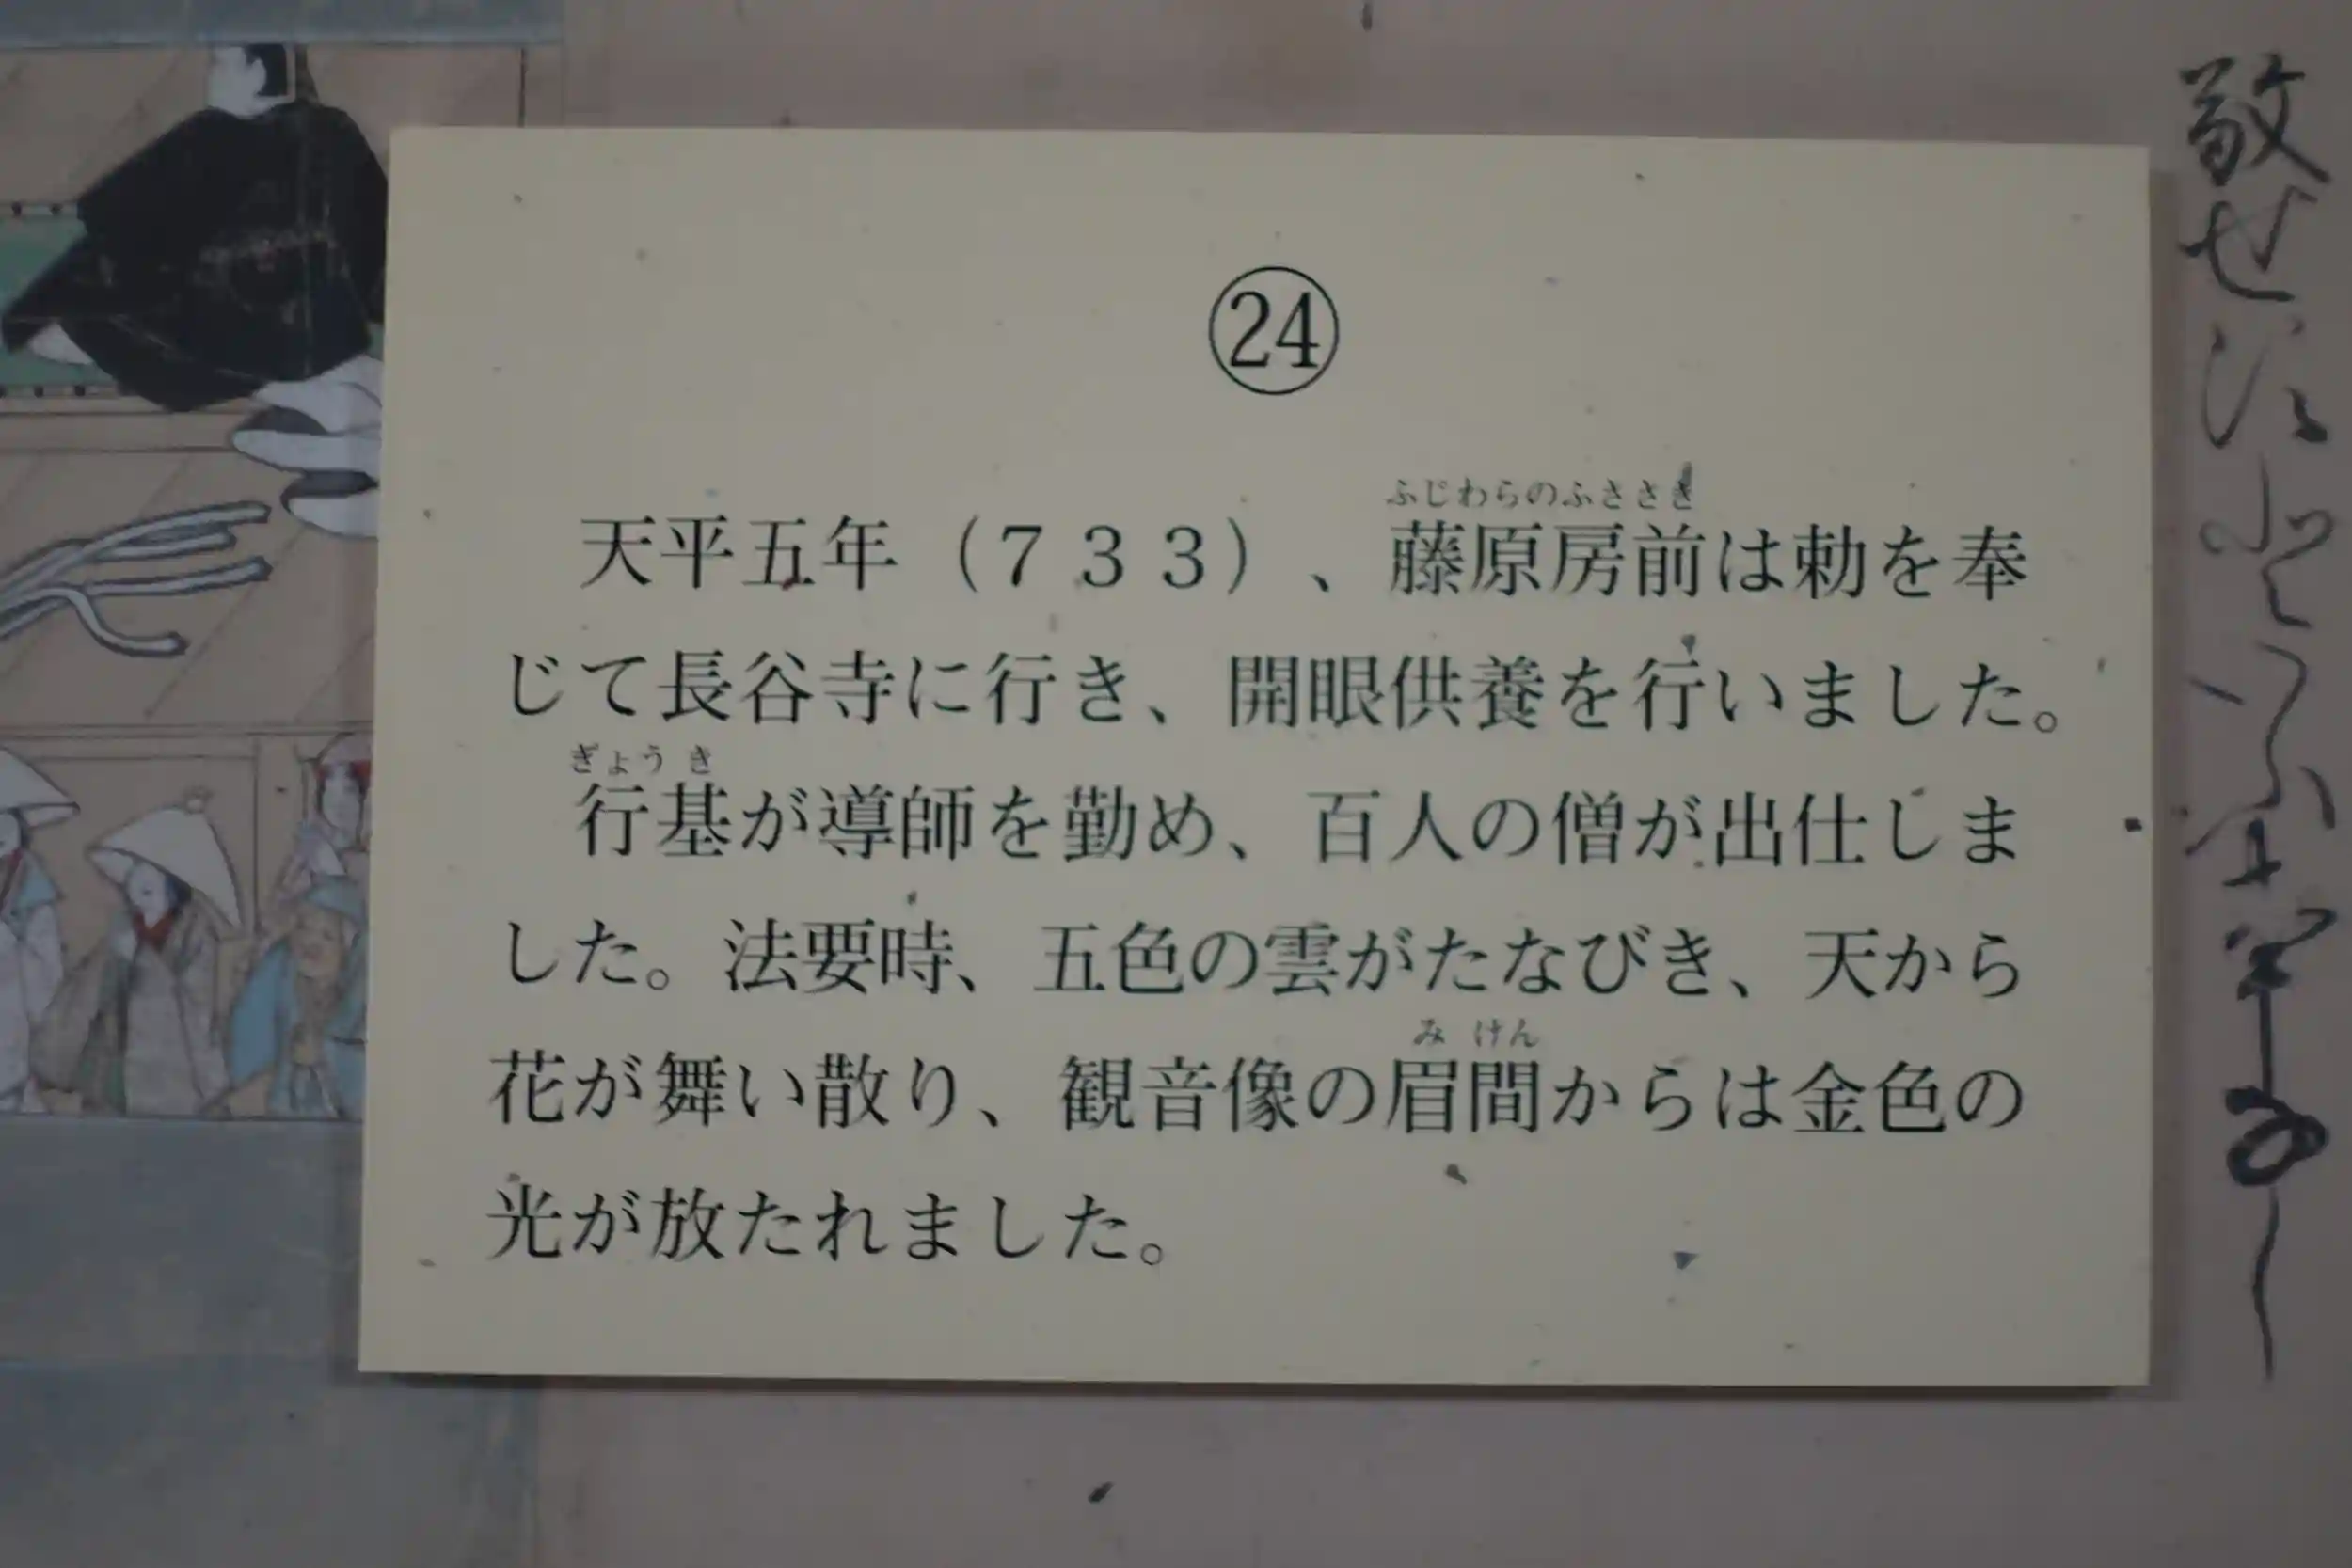 ㉔
ふじわらのふささき
天平五年(733)、藤原房前は勅を奉
じて長谷寺に行き、開眼供養を行いました。
ぎょうき
行基が導師を勤め、百人の僧が出仕しま
した。法要時、五色の雲がたなびき、天から
みけん
花が舞い散り、観音像の眉間からは金色の
光が放たれました。